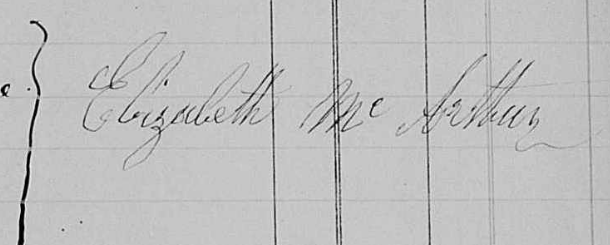 Elizabeth Mc Arthur